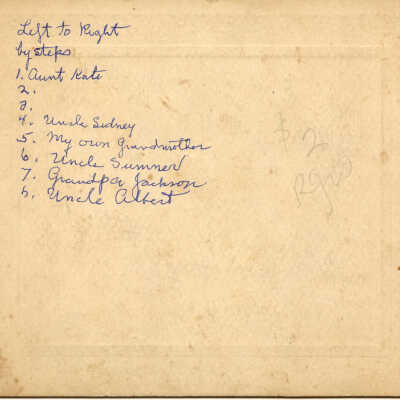 Left to Right
by steps
1. Aunt Kate
2.
3.
4. Uncle Sidney
5. My own Grandmother
6. Uncle Sumner
7. Grandpa Jackson
8. Uncle Albert
$ 2